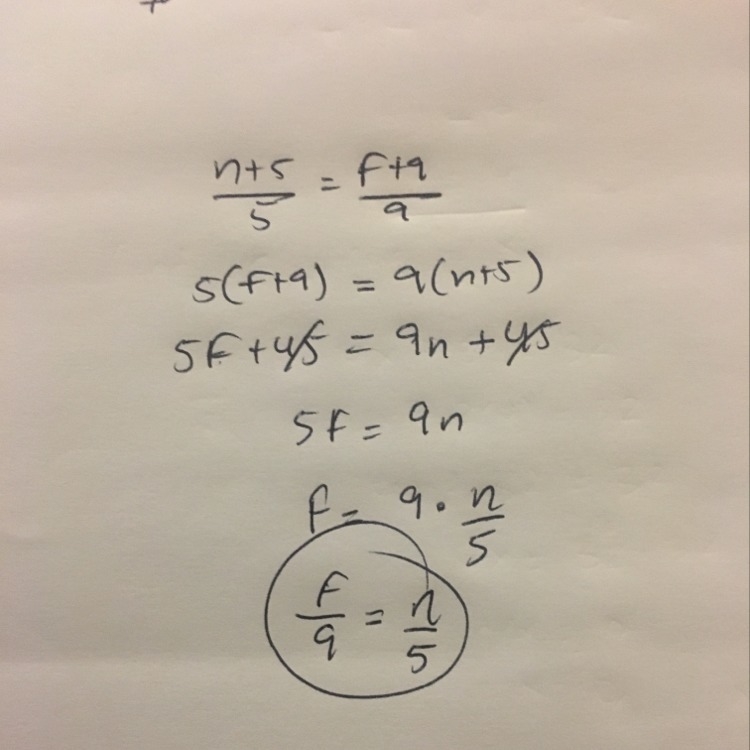 n+5/5 = f+9/9
5(f+9) = 9(n+5)
5f+45 = 9n+45
5f = 9n
f = 9 · n/5
f/9 = n/5